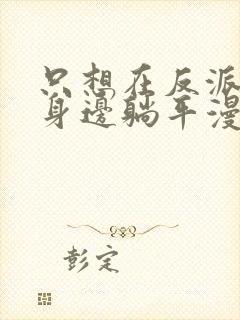 只想在反派
身邊躺平漫
彭定